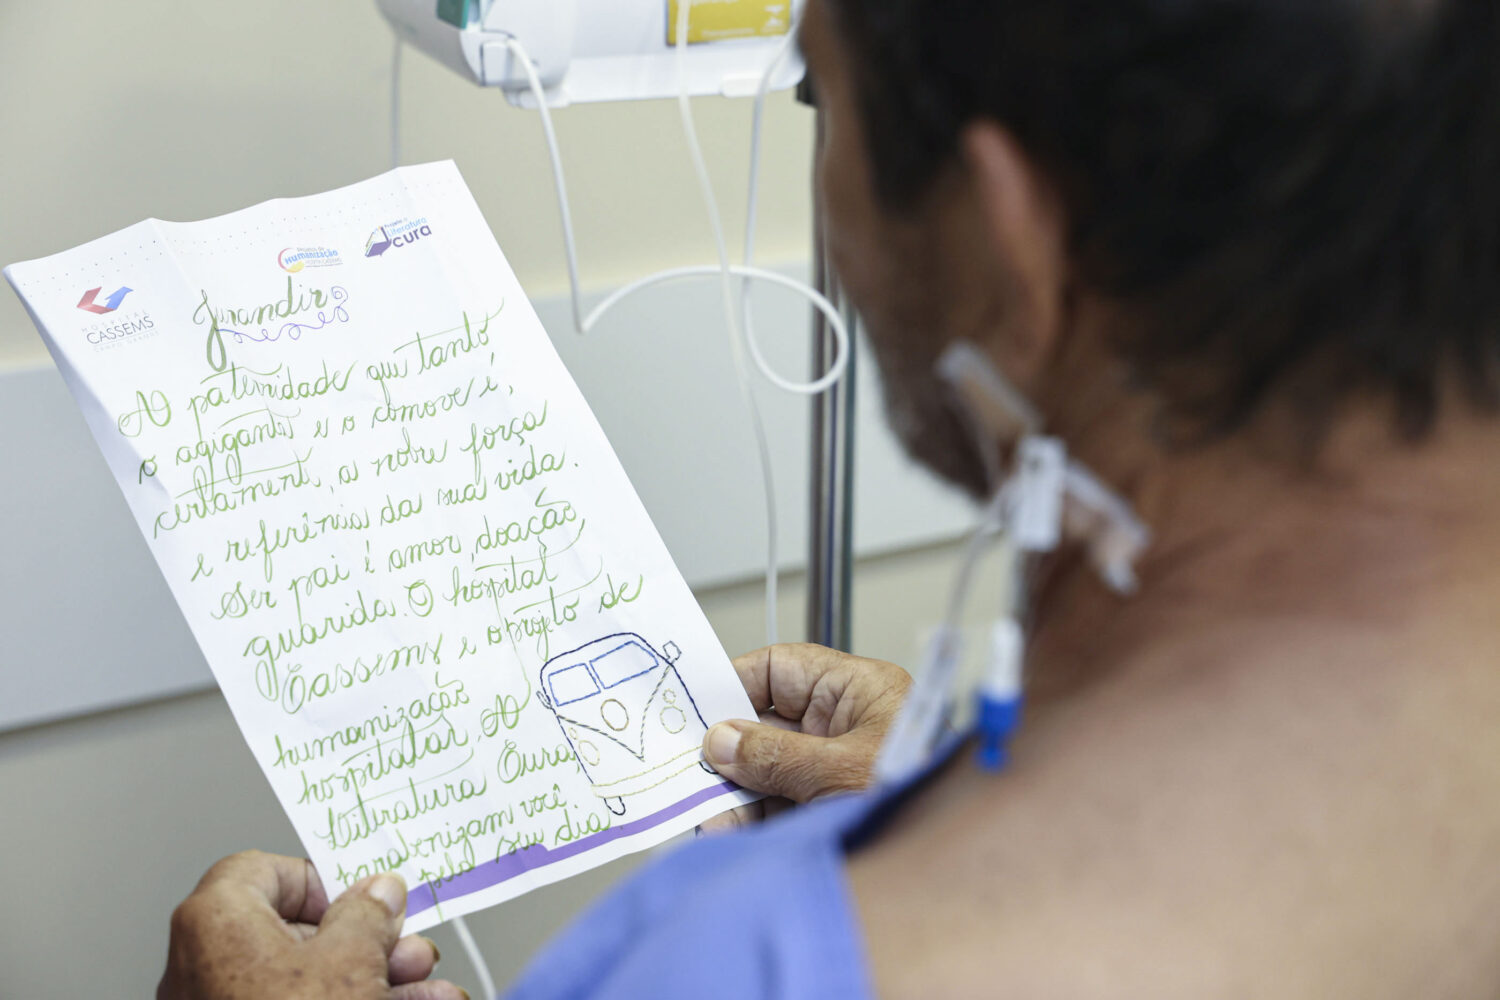 HOSPITAL
CASSEMS
CAMPO GRANDE
Projetos de
Humanização
Projeto A
Literatura
cura
Jurandir
A paternidade que tanto
o agiganta e o comove é,
certamente, a nobre força
e referência da sua vida.
Ser pai é amor, doação,
guarida. O hospital
Cassems e o projeto de
humanização
hospitalar, A
Literatura Cura,
parabenizam você
pelo seu dia